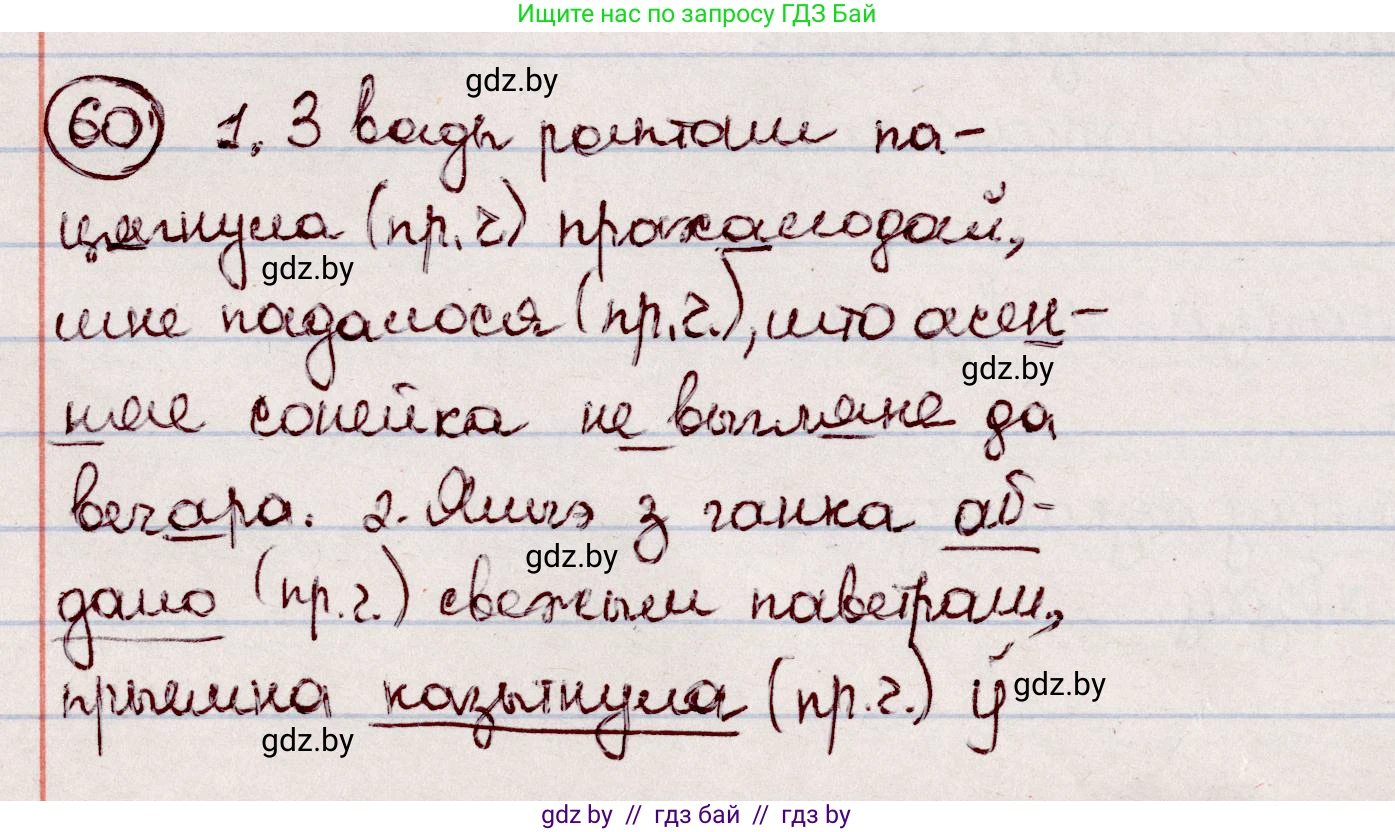 Ищите нас по запросу ГДЗ Бай
gdz.by
60 1. З вады раптам па-
цягнула (пр.ч) прахалодай,
gdz.by
мне падалося (пр.ч.), што асен-
gdz.by
няе сонейка не выгляне да
вечара. 2. Яшчэ з ганка аб-
gdz.by
дало (пр.ч.) свежым паветрам,
прыемна казытнула (пр.ч.) ў
gdz.by
gdz.by
gdz by // гдз бай // гдз by